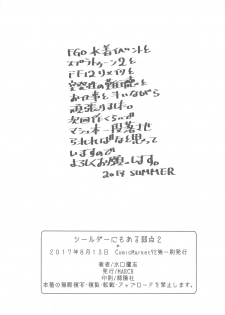 FGO水着イベントと
スプラトゥーン2と
FF12リメイクと
お仕事と手いながら
頑張りました。
次回作くらいで
マシュ本一段落させ
られればなと思って
いますので
よろしくお願いします。
2017 SUMMER
シールダーにもある弱点2
2017年8月13日 ComicMarket92第一刷発行
著者/水口鷹志
発行/MARCH
印刷/緑陽社
本書の無断複写・複製・転載・アップロードを禁止します。